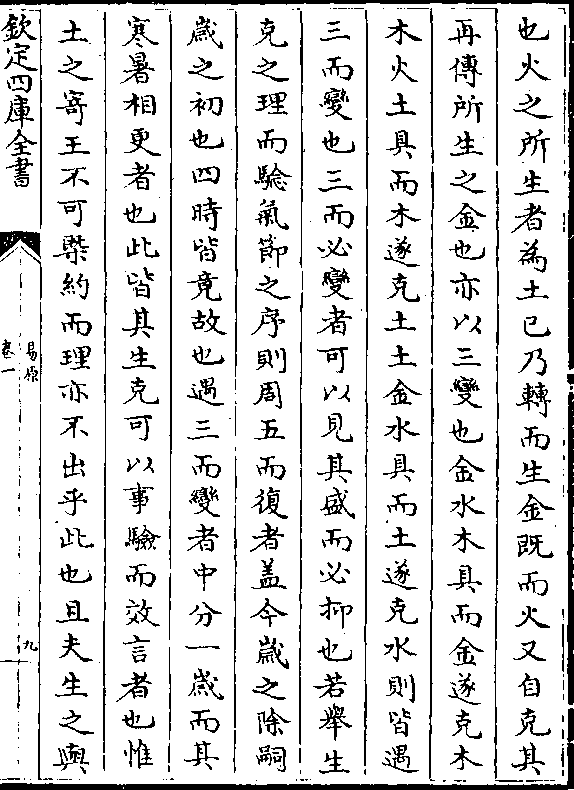 也火之所生者為土已乃轉而生金既而火又自克其
再傳所生之金也亦以三變也金水木具而金遂克木
木火土具而木遂克土土金水具而土遂克水則皆遇
三而變也三而必變者可以見其盛而必抑也若舉生
克之理而驗氣節之序則周五而復者蓋今歳之除嗣
歳之初也四時皆竟故也遇三而變者中分一歳而其
寒暑相更者也此皆其生克可以事驗而效言者也惟
土之寄王不可槩約而理亦不出乎此也且夫生之與
欽定四庫全書
易原
卷一
九